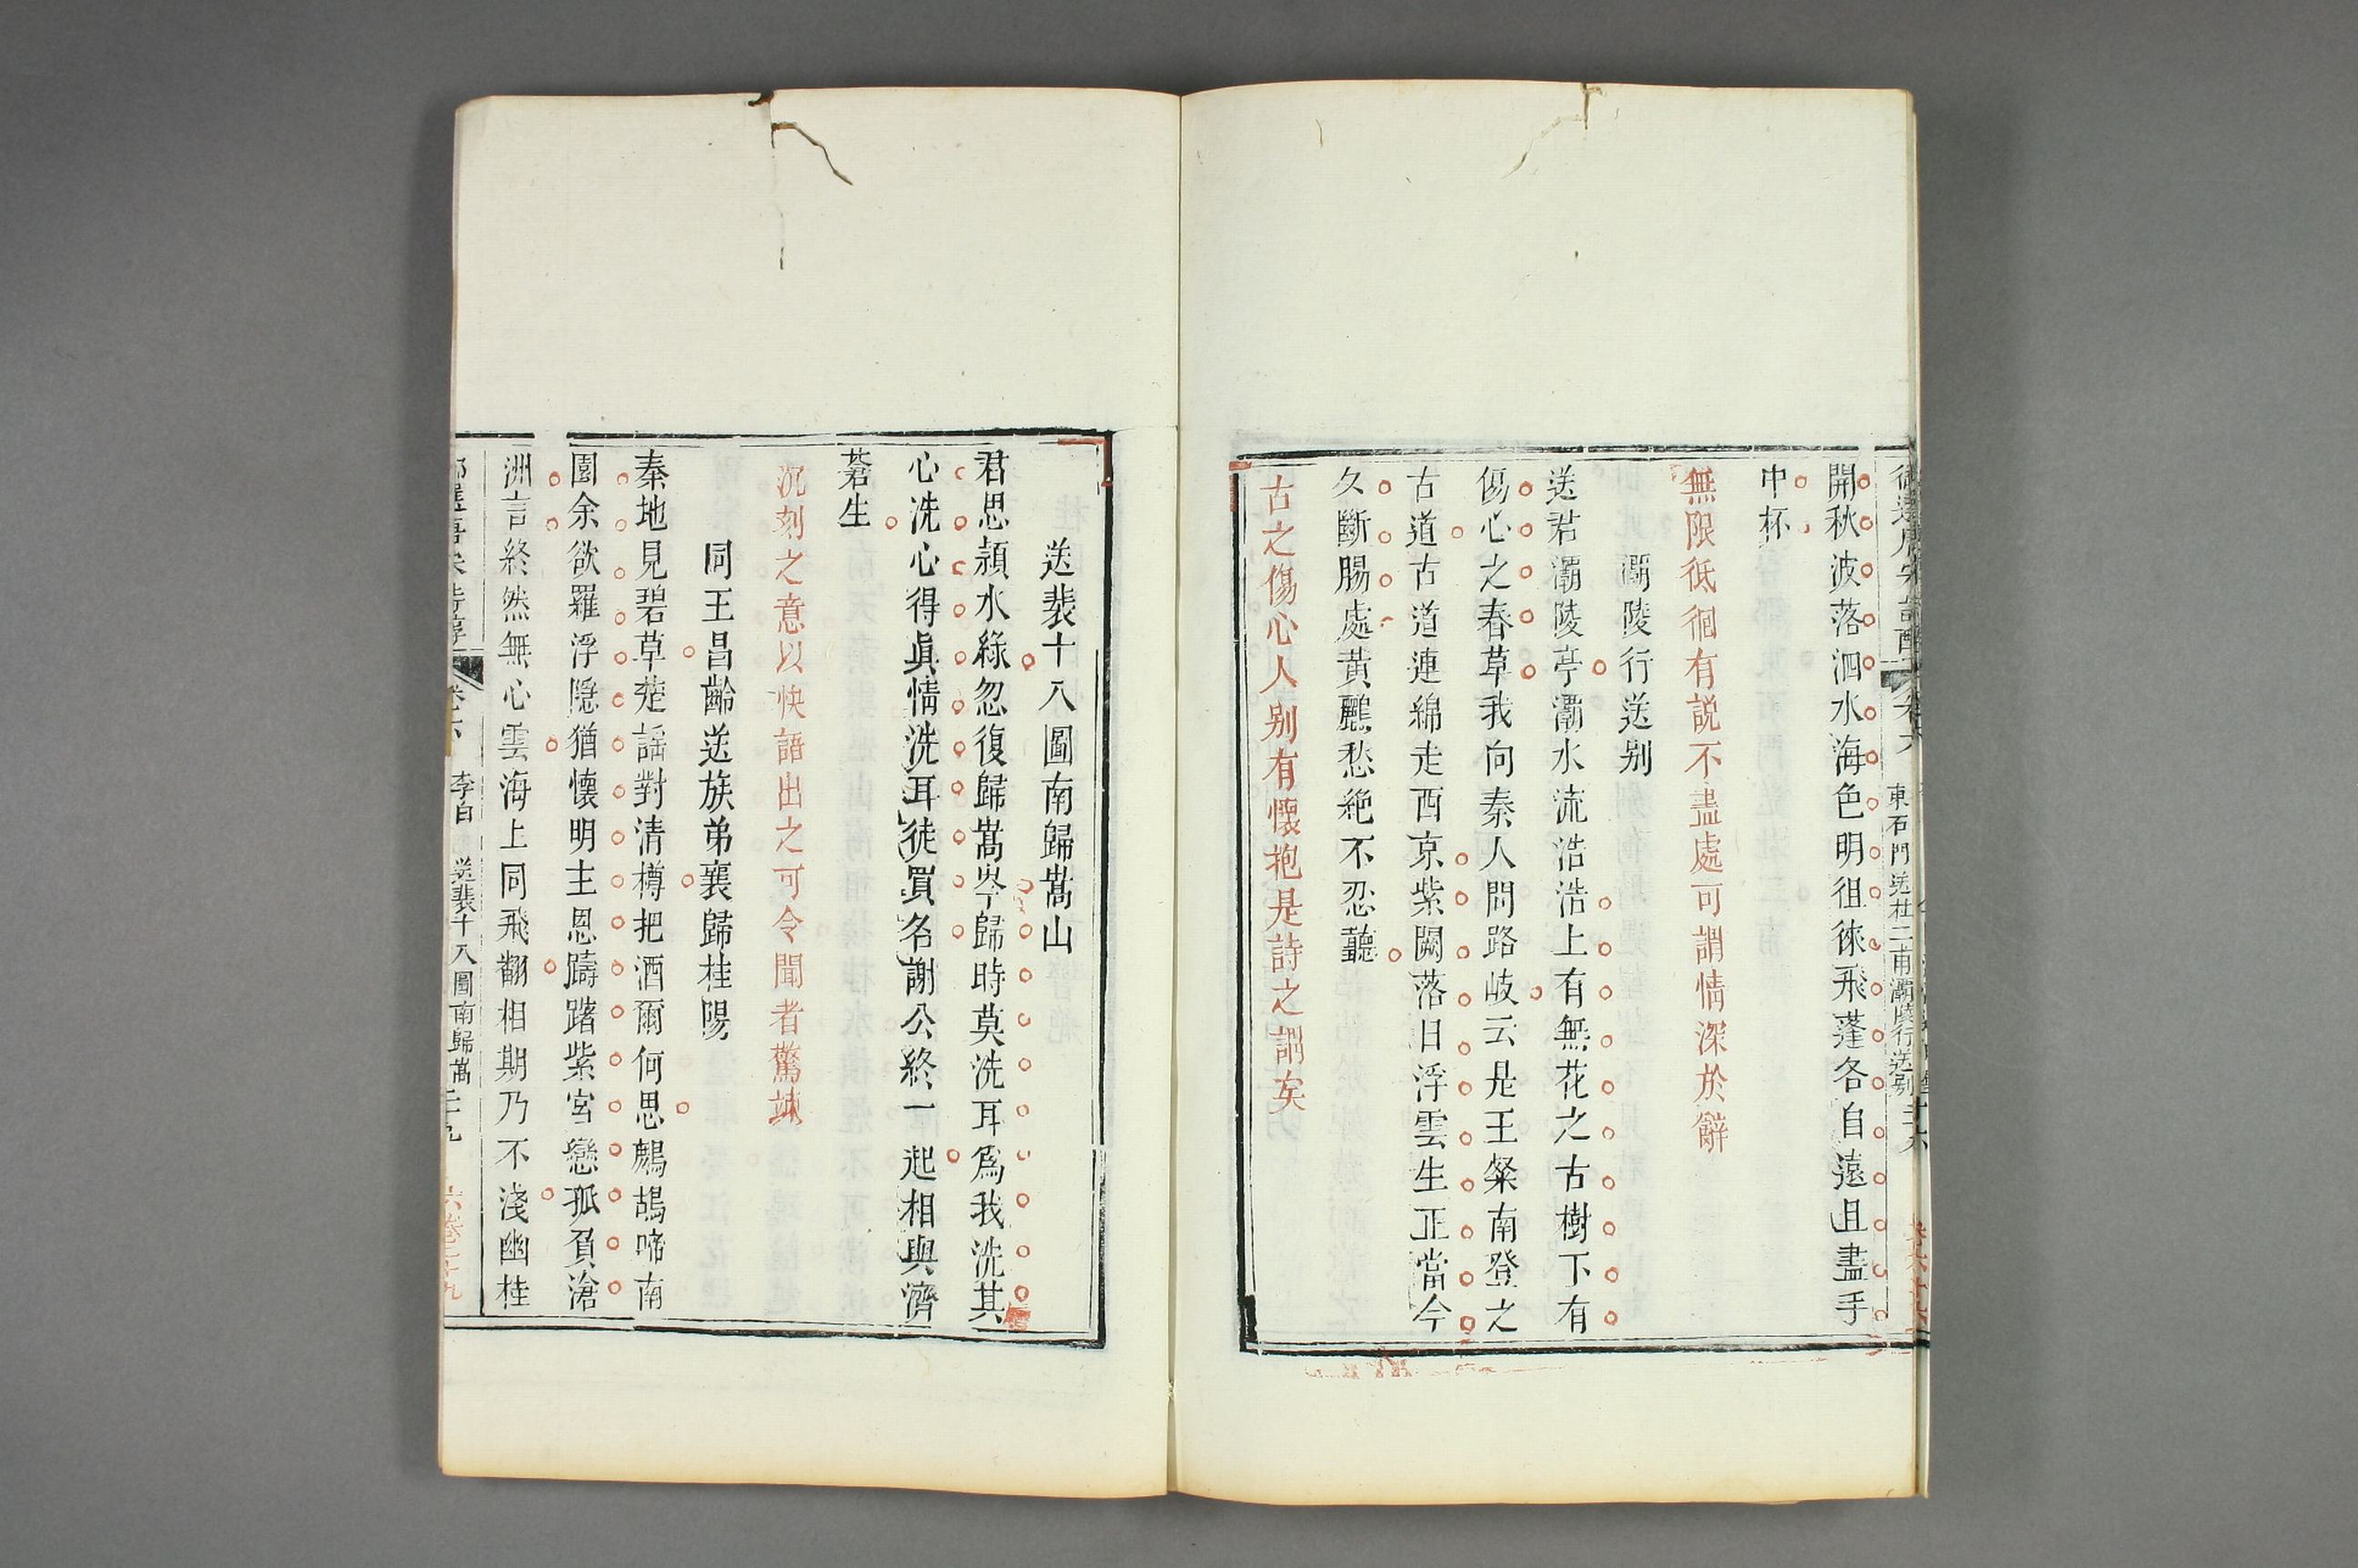 開秋波落泗水海色明徂徠飛蓬各自遠且盡手
中杯
無限低徊有説不盡處可謂情深於辭
灞陵行送别
送君灞陵亭灞水流浩浩上有無花之古樹下有
傷心之春草我向秦人問路岐云是王粲南登之
古道古道連綿走西京紫闕落日浮雲生正當今
久斷腸處黃鸝愁絶不忍聽
古之傷心人别有懷抱是詩之謂矣
送裴十八圖南歸嵩山
君思潁水綠忽復歸嵩岑歸時莫洗耳爲我洗其
心洗心得眞情洗耳徒買名謝公終一起相與濟
蒼生
沉刻之意以快語出之可令聞者驚竦
同王昌齡送族弟襄歸桂陽
秦地見碧草楚謡對清樽把酒爾何思鷓鴣啼南
園余欲羅浮隱猶懷明主恩躊躇紫宮戀孤負滄
洲言終然無心雲海上同飛翻相期乃不淺幽桂
李白 送裴十八圖南歸嵩 二十九
六卷二十九